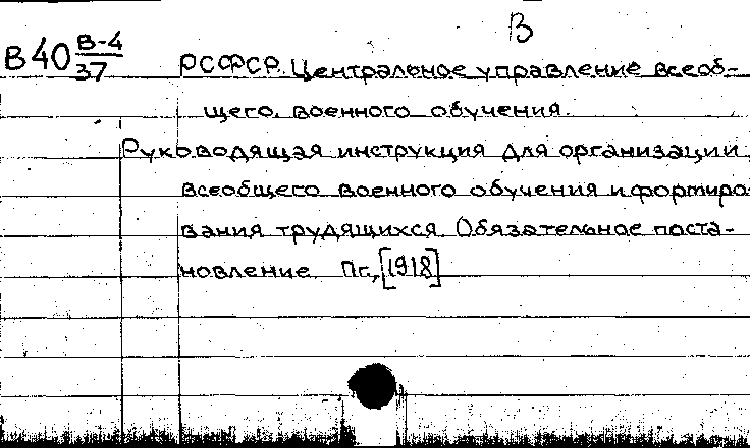 В
В 40 В-4/37
РСФСР. Центральное управление всеоб-
щего военного обучения.
Руководящая инструкция для организации
всеобщего военного обучения и формиро
вания трудящихся. Обязательное поста-
новление Пг., [1918]